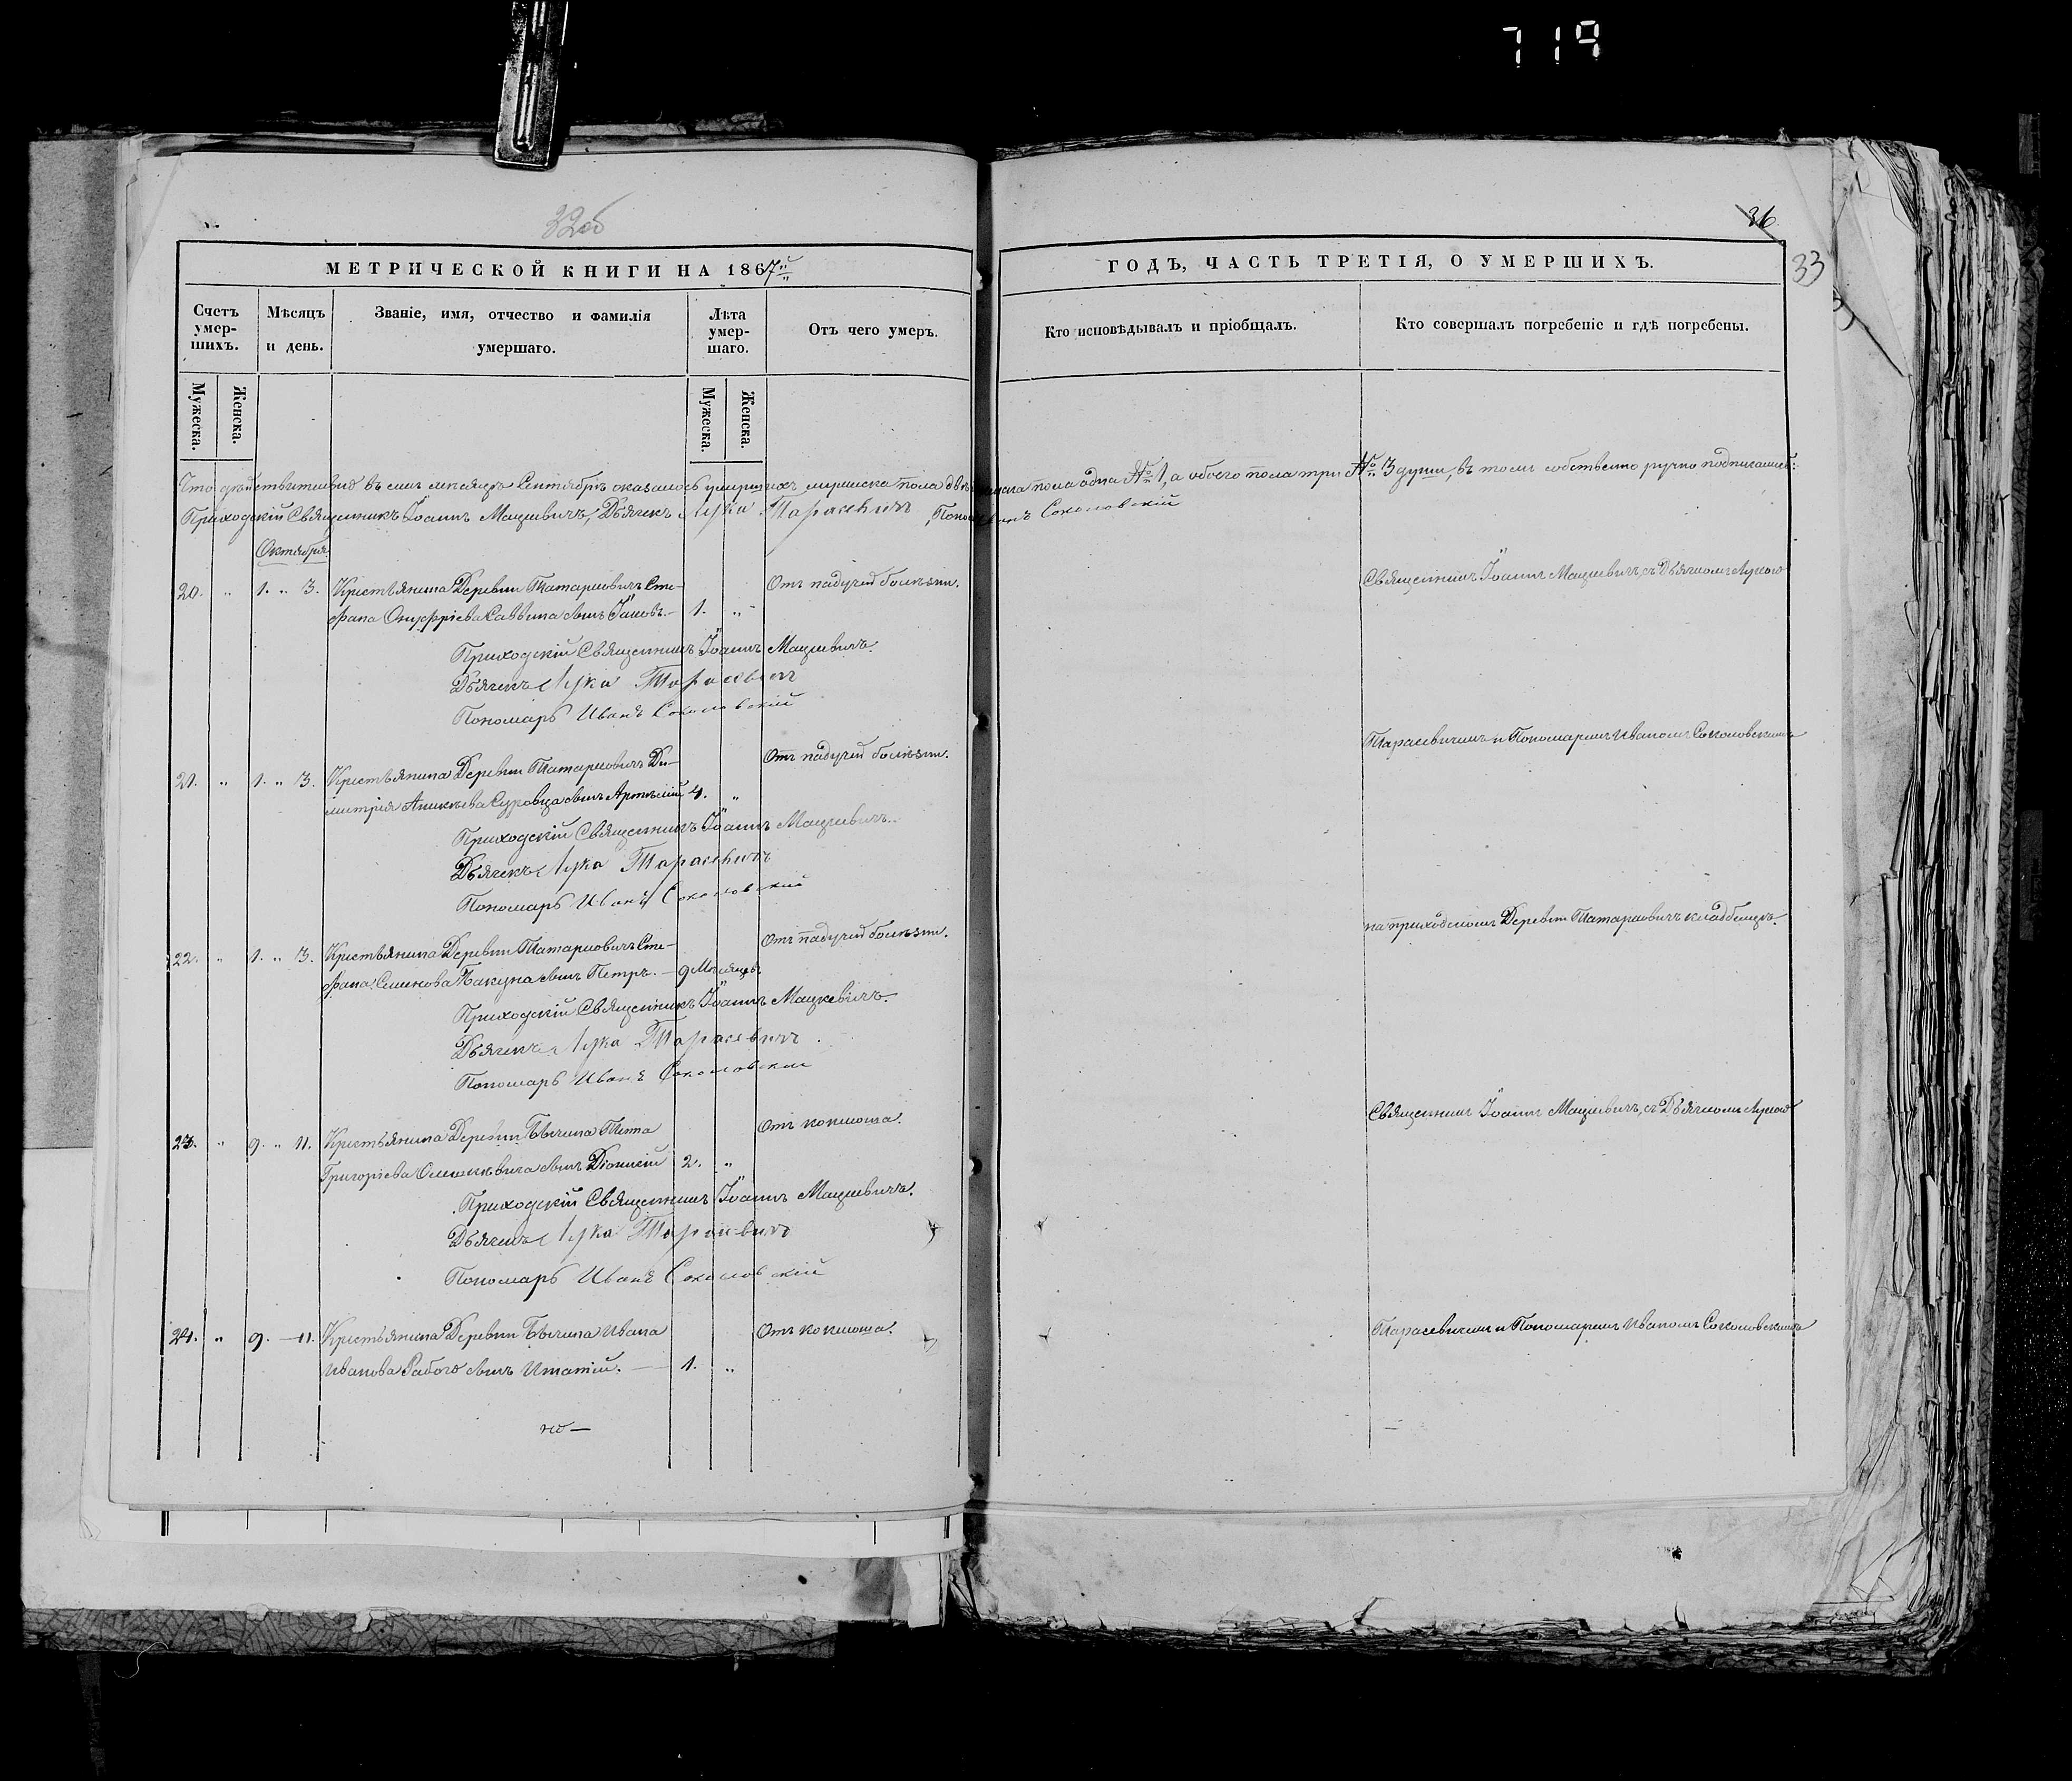 719
32об
36
33
МЕТРИЧЕСКОЙ КНИГИ НА 1867й
ГОДЪ, ЧАСТЬ ТРЕТІЯ, О УМЕРШИХЪ.
Счетъ умер-шихъ.
Мѣсяцъ и день.
Званіе, имя, отчество и фамилія умершаго.
Лѣта умер-шаго.
Отъ чего умеръ.
Кто исповѣдывалъ и пріобщалъ.
Кто совершалъ погребеніе и гдѣ погребены.
Мужеска.
Женска.
Мужеска.
Женска.
Что дѣйствительно въ семъ мѣсяцѣ Сентябрѣ оказалось умершихъ мужеска пола два женска пола одна № 1, а обоего пола три № 3 души, въ томъ собственно ручно подписались:
Приходскій Священникъ Іоаннъ Мацкевичъ, Дьячекъ Лука Тарасевичъ, Пономарь Иванъ Соколовскій
Октября
20. „ 1. „ 3. Крестьянина Деревни Татарковичъ Сте- Отъ падучей болѣзни.
фана Онуфріева Саввича сынъ Іаковъ. — 1. „
Священникъ Іоаннъ Мацкевичъ, съ Дьячкомъ Лукою
Приходскій Священникъ Іоаннъ Мацкевичъ.
Дьячекъ Лука Тарасевичъ
Пономарь Иванъ Соколовскій
Тарасевичемъ и Пономаремъ Иваномъ Соколовскимъ
21. „ 1. „ 3. Крестьянина Деревни Татарковичъ Ди- Отъ падучей болѣзни.
митрія Аникѣева Суровца сынъ Артемій 4. „
Приходскій Священникъ Іоаннъ Мацкевичъ.
Дьячекъ Лука Тарасевичъ
Пономарь Иванъ Соколовскій
на приходскомъ Деревни Татарковичъ кладбищѣ.
22. „ 1. „ 3. Крестьянина Деревни Татарковичъ Сте- Отъ падучей болѣзни.
фана Семенова Бакуна сынъ Петръ. — 9 Мѣсяцевъ
Приходскій Священникъ Іоаннъ Мацкевичъ.
Дьячекъ Лука Тарасевичъ
Пономарь Иванъ Соколовскій
Священникъ Іоаннъ Мацкевичъ, съ Дьячкомъ Лукою
23. „ 9. „ 11. Крестьянина Деревни Отъ коклюша.
Григорьева сынъ Діонисій 2. „
Приходскій Священникъ Іоаннъ Мацкевичъ.
Дьячекъ Лука Тарасевичъ
Пономарь Иванъ Соколовскій
24. „ 9. — 11. Крестьянина Деревни Ивана Отъ коклюша.
Иванова Рабого сынъ Игнатій. — 1. „
Тарасевичемъ и Пономаремъ Иваномъ Соколовскимъ